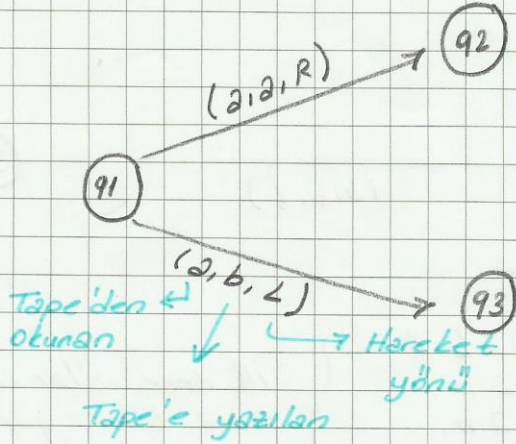 q2
(a,a,R)
q1
(a,b,L)
q3
Tape'den okunan
Hareket yönü
Tape'e yazılan